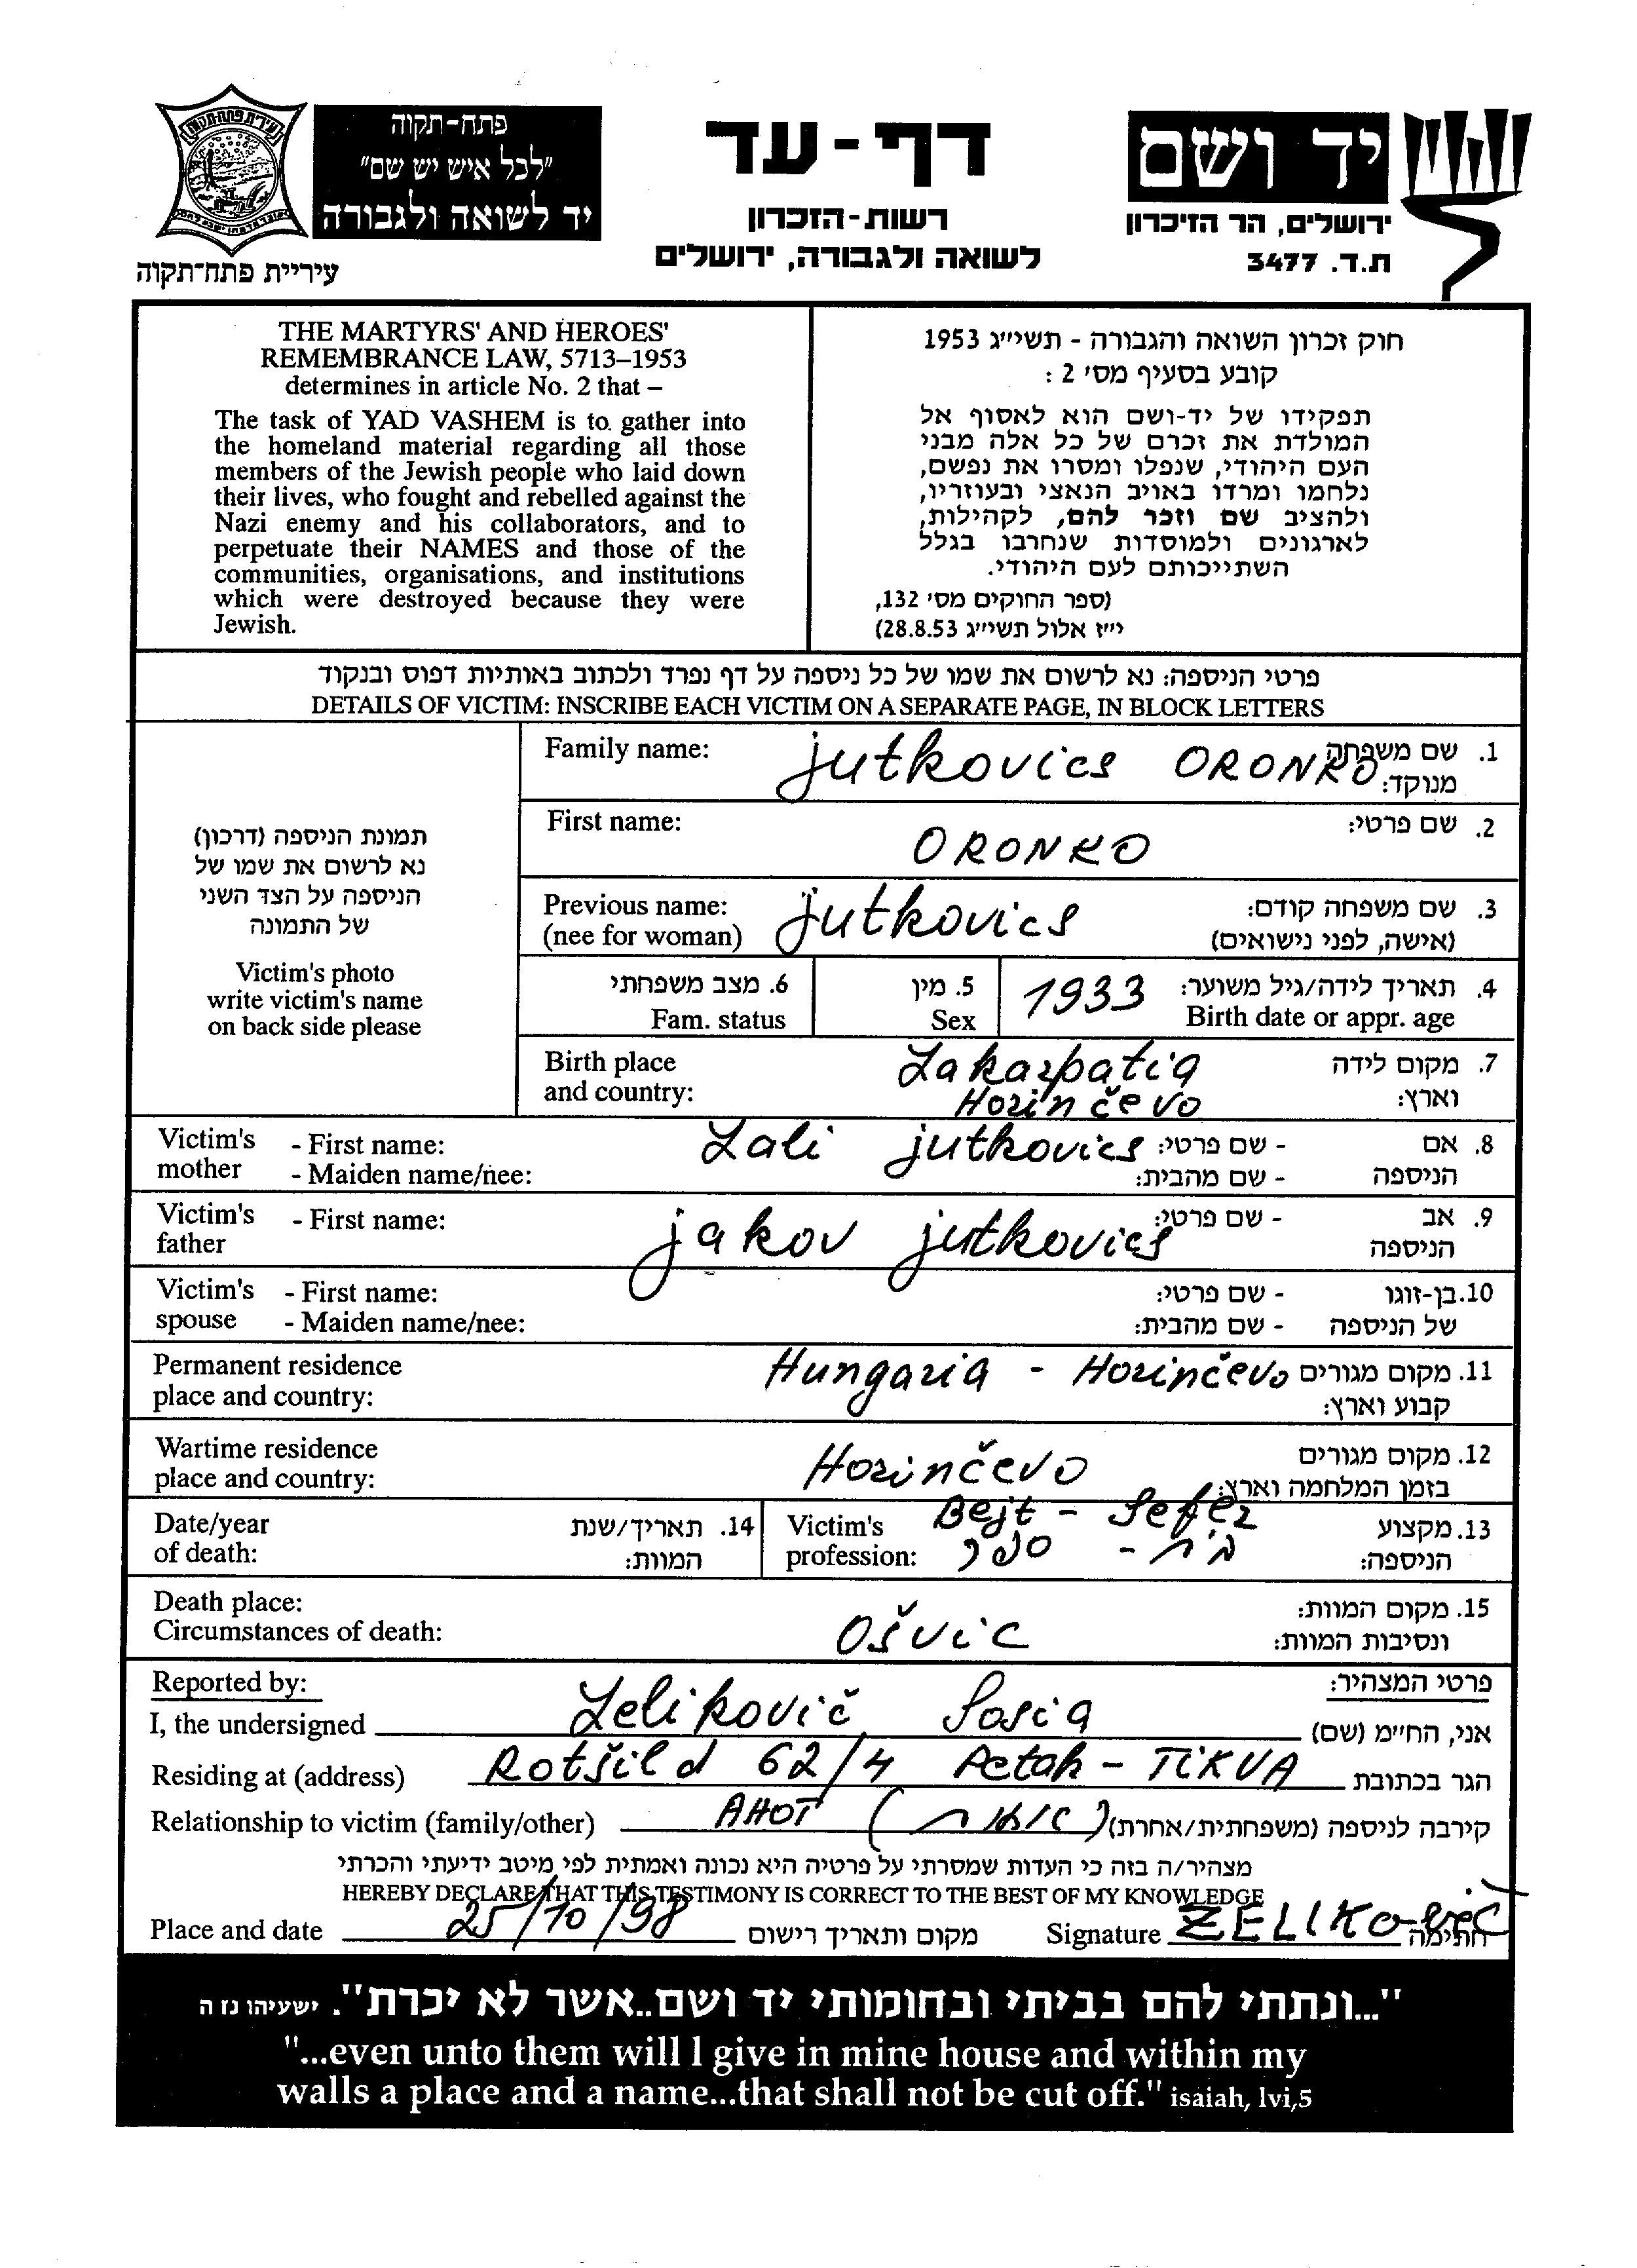 פתח-תקוה
"לכל איש יש שם"
יד לשואה ולגבורה
עיריית פתח-תקוה
דף-עד
רשות-הזכרון
לשואה ולגבורה, ירושלים
יד ושם
ירושלים, הר הזיכרון
ת.ד. 3477
THE MARTYRS' AND HEROES'
REMEMBRANCE LAW, 5713–1953
determines in article No. 2 that –
The task of YAD VASHEM is to gather into
the homeland material regarding all those
members of the Jewish people who laid down
their lives, who fought and rebelled against the
Nazi enemy and his collaborators, and to
perpetuate their NAMES and those of the
communities, organisations, and institutions
which were destroyed because they were
Jewish.
חוק זכרון השואה והגבורה - תשי״ג 1953
קובע בסעיף מס׳ 2 :
תפקידו של יד-ושם הוא לאסוף אל
המולדת את זכרם של כל אלה מבני
העם היהודי, שנפלו ומסרו את נפשם,
נלחמו ומרדו באויב הנאצי ובעוזריו,
ולהציב שם וזכר להם, לקהילות,
לארגונים ולמוסדות שנחרבו בגלל
השתייכותם לעם היהודי.
(ספר החוקים מס׳ 132,
י״ז אלול תשי״ג 28.8.53)
פרטי הניספה: נא לרשום את שמו של כל ניספה על דף נפרד ולכתוב באותיות דפוס ובנקוד
DETAILS OF VICTIM: INSCRIBE EACH VICTIM ON A SEPARATE PAGE, IN BLOCK LETTERS
תמונת הניספה (דרכון)
נא לרשום את שמו של
הניספה על הצד השני
של התמונה
Victim's photo
write victim's name
on back side please
Family name: jutkovics ORONKO 1. שם משפחה
מנוקד:
First name: ORONKO 2. שם פרטי:
Previous name: jutkovics 3. שם משפחה קודם:
(nee for woman) (אישה, לפני נישואים)
6. מצב משפחתי 5. מין 1933 4. תאריך לידה/גיל משוער:
Fam. status Sex Birth date or appr. age
Birth place Zakarpatia 7. מקום לידה
and country: Horinčevo וארץ:
Victim's - First name: Zali jutkovics - שם פרטי: 8. אם
mother - Maiden name/nee: - שם מהבית: הניספה
Victim's - First name: jakov jutkovics - שם פרטי: 9. אב
father הניספה
Victim's - First name: - שם פרטי: 10. בן-זוגו
spouse - Maiden name/nee: - שם מהבית: של הניספה
Permanent residence Hungaria - Horinčevo 11. מקום מגורים
place and country: קבוע וארץ:
Wartime residence Horinčevo 12. מקום מגורים
place and country: בזמן המלחמה וארץ:
Date/year 14. תאריך/שנת Victim's Bejt - Sefer 13. מקצוע
of death: המוות: profession: בית - ספר הניספה:
Death place: 15. מקום המוות:
Circumstances of death: Ošvic ונסיבות המוות:
Reported by: פרטי המצהיר:
I, the undersigned Zelikovič Sosia אני, החי״מ (שם)
Residing at (address) Rotšild 62/4 Petah - TIKVA הגר בכתובת
Relationship to victim (family/other) AHOT (אחות) קירבה לניספה (משפחתית/אחרת)
מצהיר/ה בזה כי העדות שמסרתי על פרטיה היא נכונה ואמתית לפי מיטב ידיעתי והכרתי
HEREBY DECLARE THAT THIS TESTIMONY IS CORRECT TO THE BEST OF MY KNOWLEDGE
Place and date 25/10/98 מקום ותאריך רישום Signature ZELIKOvič חתימה
"...ונתתי להם בביתי ובחומותי יד ושם..אשר לא יכרת". ישעיהו נז ה
"...even unto them will I give in mine house and within my
walls a place and a name...that shall not be cut off." isaiah, lvi,5